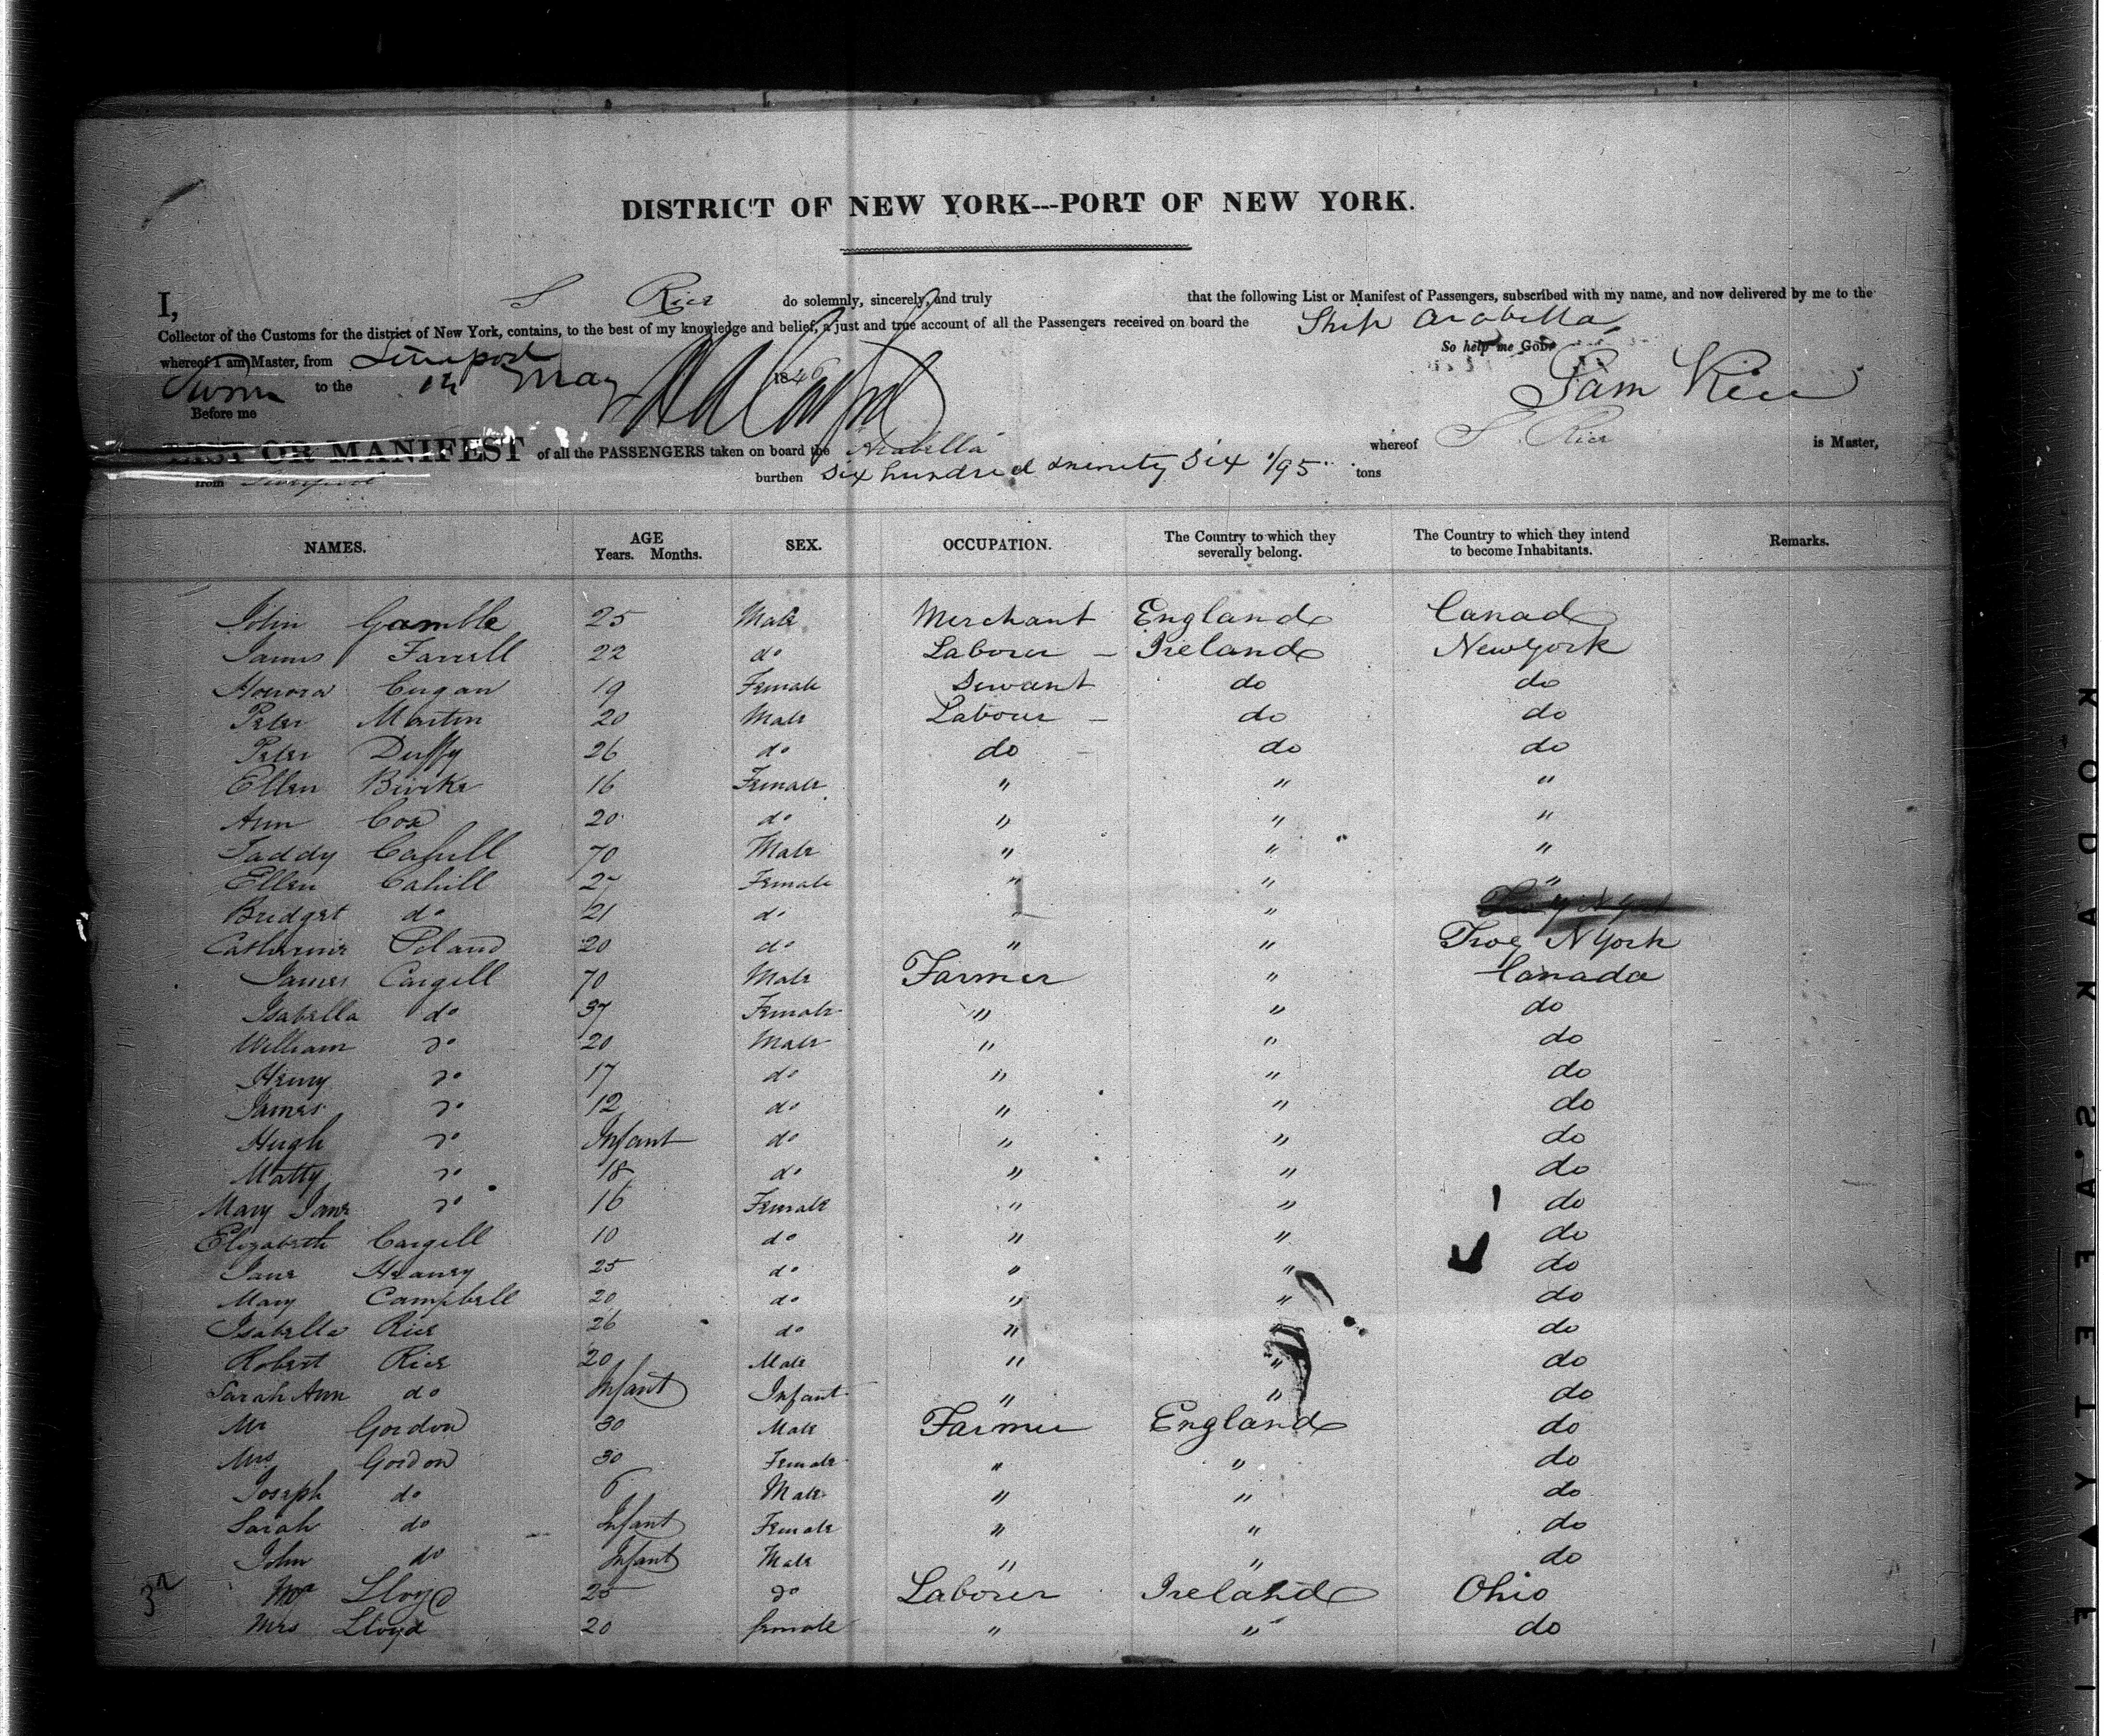 DISTRICT OF NEW YORK---PORT OF NEW YORK.
I, S Rice do solemnly, sincerely, and truly that the following List or Manifest of Passengers, subscribed with my name, and now delivered by me to the
Collector of the Customs for the district of New York, contains, to the best of my knowledge and belief, a just and true account of all the Passengers received on board the Ship Arabella
whereof I am Master, from Liverpool So help me God.
Sworn to the 12 May 1846 Sam Rice
Before me
LIST OR MANIFEST of all the PASSENGERS taken on board the Arabella whereof S. Rice is Master,
from Liverpool burthen Six hundred ninety Six /95 tons
NAMES. AGE Years. Months. SEX. OCCUPATION. The Country to which they severally belong. The Country to which they intend to become Inhabitants. Remarks.
John Gamble 25 Male Merchant England Canad
James Farrell 22 do Laborer - Ireland New York
Honora Cugan 19 Female Servant do do
Peter Martin 20 Male Labour - do do
Peter Duffy 26 do do do do
Ellen Birke 16 Female " " "
Ann Cox 20 do " " "
Taddy Cahill 70 Male " " "
Ellen Cahill 27 Female " " "
Bridget do 21 do " " Troy N York
Catherine Poland 20 do " " Troy N York
James Cargill 70 Male Farmer " Canada
Isabella do 37 Female " " do
William do 20 Male " " do
Henry do 17 do " " do
James do 12 do " " do
Hugh do Infant do " " do
Matty do 18 do " " do
Mary Jane do 16 Female " " do
Elizabeth Cargill 10 do " " do
Jane Heaney 25 do " " do
Mary Campbell 20 do " " do
Isabella Rice 26 do " " do
Robert Rice 20 Male " " do
Sarah Ann do Infant Infant " " do
Mr Gordon 30 Male Farmer England do
Mrs Gordon 30 Female " " do
Joseph do 6 Male " " do
Sarah do Infant Female " " do
John do Infant Male " " do
32 Mr Lloyd 25 do Laborer Ireland Ohio
Mrs Lloyd 20 female " " do